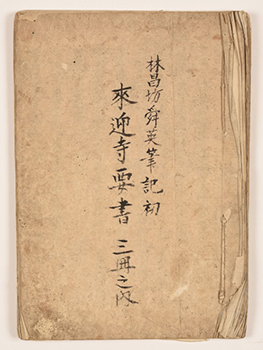 林昌坊舜英筆記初
來迎寺要書 三冊之内